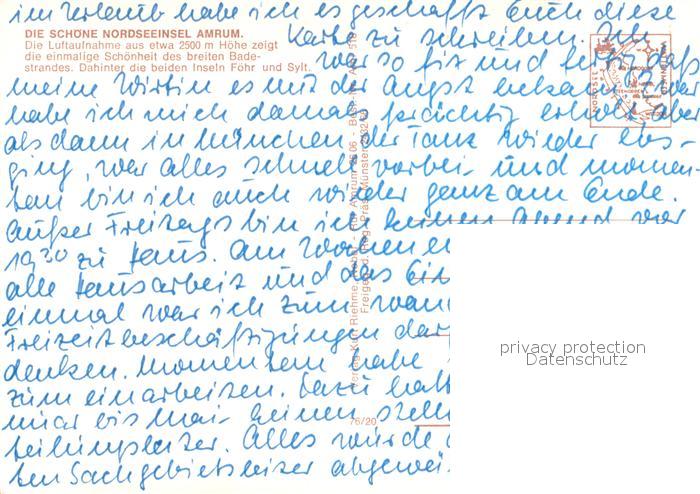 im Urlaub habe ich es geschafft Euch diese
DIE SCHÖNE NORDSEEINSEL AMRUM.
Die Luftaufnahme aus etwa 2500 m Höhe zeigt
die einmalige Schönheit des breiten Bade-
strandes. Dahinter die beiden Inseln Föhr und Sylt.
Karte zu schreiben. Ich
war so fix und fertig daß
meine Wirtin es mit der Angst bekam. Zwar
habe ich mich damals prächtig erholt aber
als dann in München der Tanz wieder los-
ging, war alles schnell vorbei und momen-
tan bin ich auch wieder ganz am Ende.
Außer Freitags bin ich keinen Abend vor
19³⁰ zu Haus. Am
alle Hausarbeit und das
einmal war ich zum
Freizeitbeschäftigungen
denken. Momentan habe
zum einarbeiten. Dazu
bis Mai keinen
Alles wurde
ten Sachgebietsleiter
76/20
privacy protection
Datenschutz